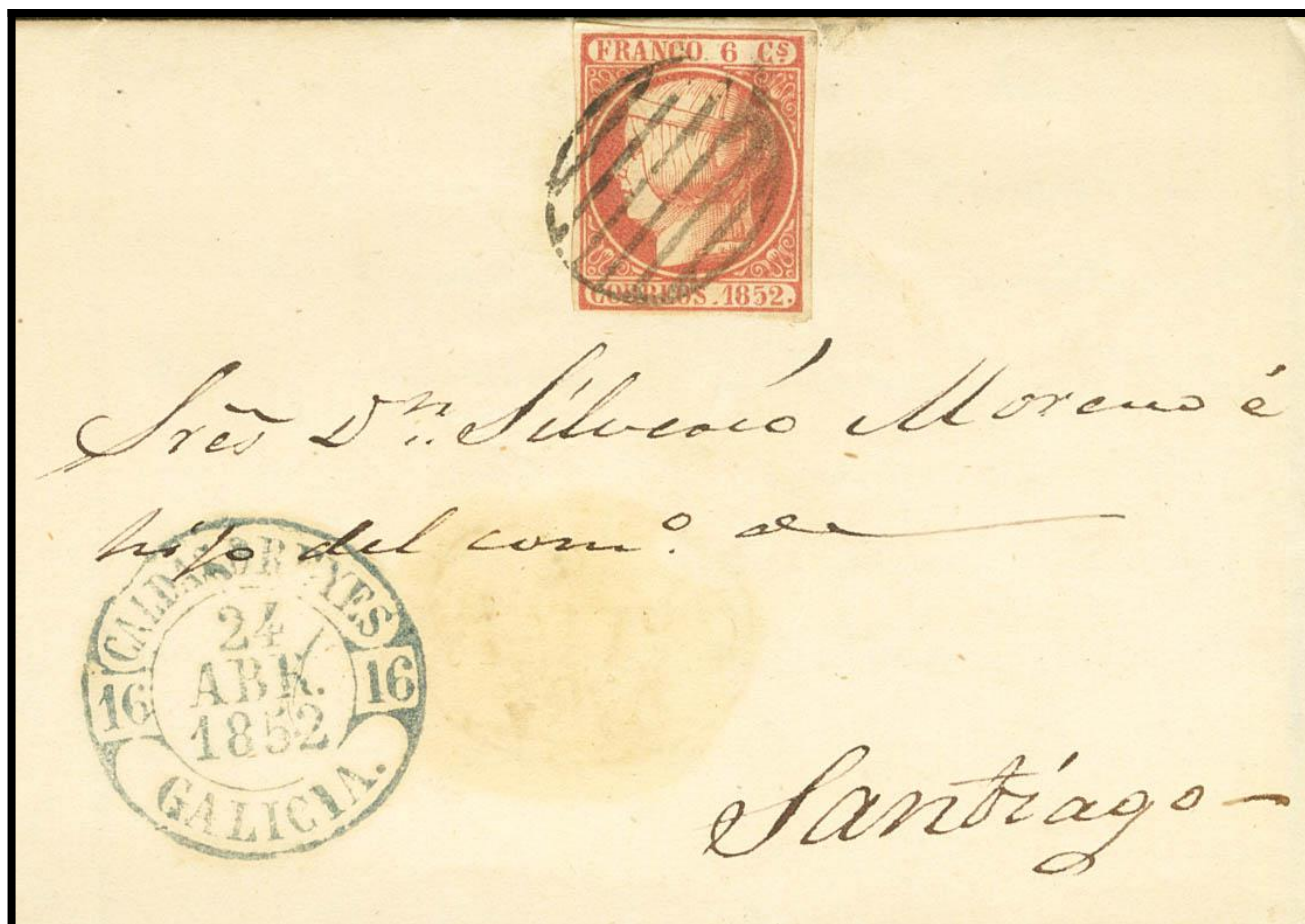 FRANCO. 6 Cs.
CORREOS. 1852.
Sres Dn. Silverio Moreno é
hijo del como. de
CALDAS DE REYES
24
ABR.
1852
16 16
GALICIA.
Santiago